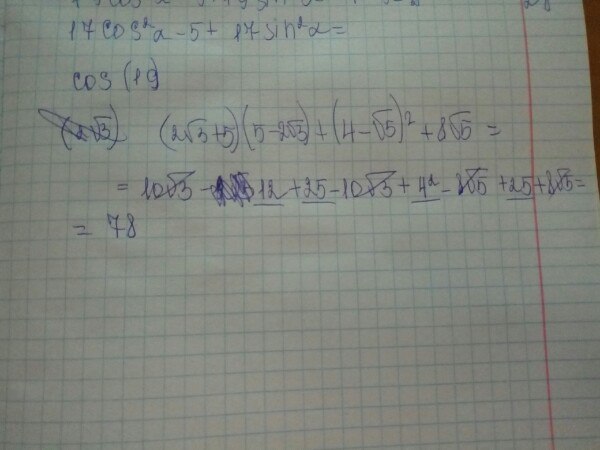 17cos²α-5+17sin²α=
cos (19
(2√3) (2√3+5)(5-2√3)+(4-√5)²+8√5=
=10√3-12+25-10√3+4²-8√5+25+8√5=
=78